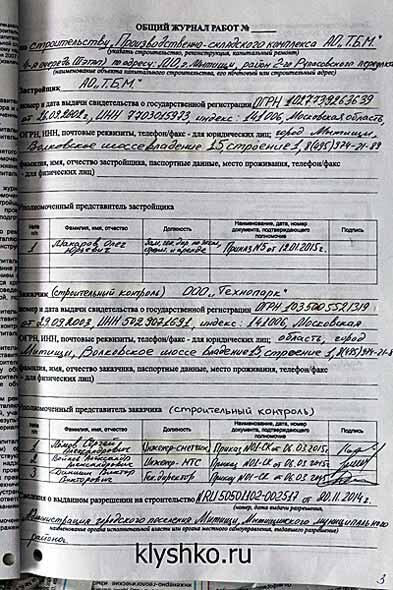 ОБЩИЙ ЖУРНАЛ РАБОТ №
по строительству „Производственно-складского комплекса АО„Т.Б.М."
(указать строительство, реконструкция, капитальный ремонт)
4-я очередь (Этап) по адресу: М.О., г. Мытищи, район 2-го Рупасовского переулка
(наименование объекта капитального строительства, его почтовый или строительный адрес)
Застройщик АО„Т.Б.М."
номер и дата выдачи свидетельства о государственной регистрации ОГРН 1027739263639
от 26.09.2002г, ИНН 7703015973, индекс: 141006, Московская область,
ОГРН, ИНН, почтовые реквизиты, телефон/факс - для юридических лиц; город Мытищи,
Волковское шоссе владение 15 строение 1, 8(495)974-21-89
фамилия, имя, отчество застройщика, паспортные данные, место проживания, телефон/факс
- для физических лиц)
Уполномоченный представитель застройщика
№№ п/п Фамилия, имя, отчество Должность Наименование, дата, номер документа, подтверждающего полномочие Подпись
1 Макаров Олег Юрьевич Приказ №5 от 12.01.2015г.
Заказчик (строительный контроль) ООО „Технопарк"
номер и дата выдачи свидетельства о государственной регистрации ОГРН 1035005521319
от 29.09.2003, ИНН 5029071591, индекс: 141006, Московская
ОГРН, ИНН, почтовые реквизиты, телефон/факс - для юридических лиц; область, город
Мытищи, Волковское шоссе владение 15 строение 1, 8(495)974-21-8
фамилия, имя, отчество заказчика, паспортные данные, место проживания, телефон/факс
- для физических лиц)
Уполномоченный представитель заказчика (строительный контроль)
№№ п/п Фамилия, имя, отчество Должность Наименование, дата, номер документа, подтверждающего полномочие Подпись
1 Сергей Александрович Инженер-сметчик Приказ №01-СК от 06.03.2015г.
2 Александрович Инженер-ПТС Приказ №01-СК от 06.03.2015г.
3 Виктор Викторович Ген. директор Приказ №01-СК от 06.03.2015г.
Сведения о выданном разрешении на строительство №RU50501102-002517 от 20.11.2014г.
(номер, дата выдачи разрешения,
Администрация городского поселения Мытищи, Мытищинского муниципального
наименование органа исполнительной власти или органа местного самоуправления, выдавшего разрешение)
района.
klyshko.ru
3